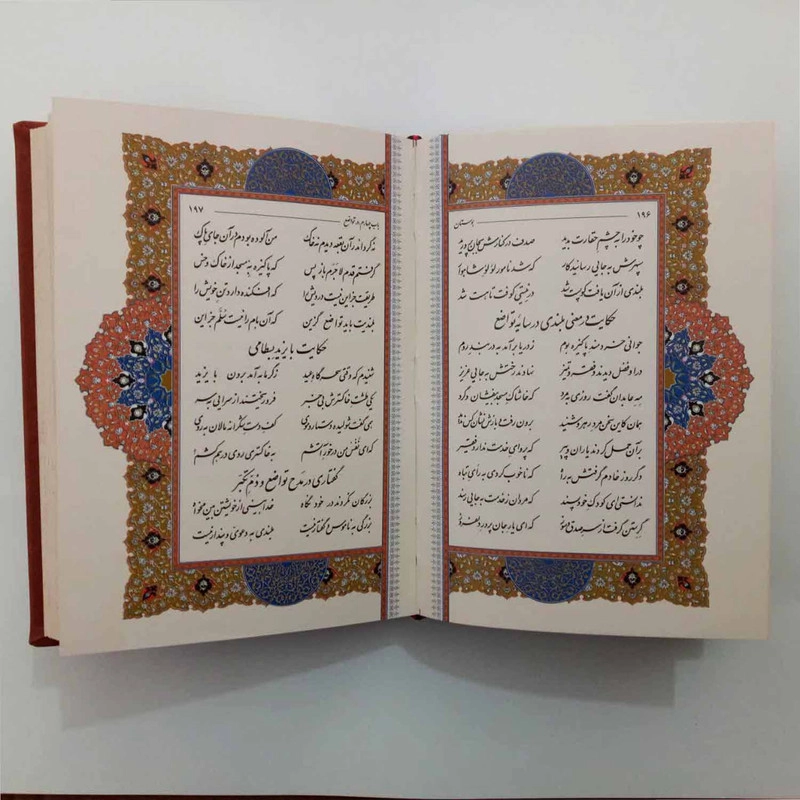 ۱۹۶ بوستان
چو خود را به چشم حقارت بدید صدف در کنارش به جان پرورید
سپهرش به جایی رسانید کار که شد نامور لؤلؤ شاهوار
بلندی از آن یافت کو پست شد در نیستی کوفت تا هست شد
حکایت در معنی بلندی در سایهٔ تواضع
جوانی خردمند پاکیزه بوم ز دریا برآمد به دربند روم
در او فضل دیدند و فقر و تمیز نهادند رختش به جایی عزیز
مه عابدان گفت روزی به مرد که خاشاک مسجد بیفشان و گرد
همان کاین سخن مرد رهرو شنید برون رفت و بازش نشان کس ندید
بر آن حمل کردند یاران و پیر که پروای خدمت ندارد فقیر
دگر روز خادم گرفتش به راه که ناخوب کردی به رأی تباه
ندانستی ای کودک خودپسند که مردان ز خدمت به جایی رسند
گرستن گرفت از سر صدق و سوز که ای یار جان پرور دلفروز
باب چهارم در تواضع ۱۹۷
نه گرد اندر آن بقعه دیدم نه خاک من آلوده بودم در آن جای پاک
گرفتم قدم لاجرم باز پس که پاکیزه به مسجد از خاک و خس
طریقت جز این نیست درویش را که افکنده دارد تن خویش را
بلندیت باید تواضع گزین که آن بام را نیست سلّم جز این
حکایت بایزید بسطامی
شنیدم که وقتی سحرگاه عید ز گرمابه آمد برون بایزید
یکی طشت خاکسترش بی خبر فرو ریختند از سرایی به سر
همی گفت شولیده دستار و موی کف دست شکرانه مالان به روی
که ای نفس من در خور آتشم به خاکستری روی درهم کشم
گفتاری در مدح تواضع و ذمّ تکبّر
بزرگان نکردند در خود نگاه خدابینی از خویشتن بین مخواه
بزرگی به ناموس و گفتار نیست بلندی به دعوی و پندار نیست